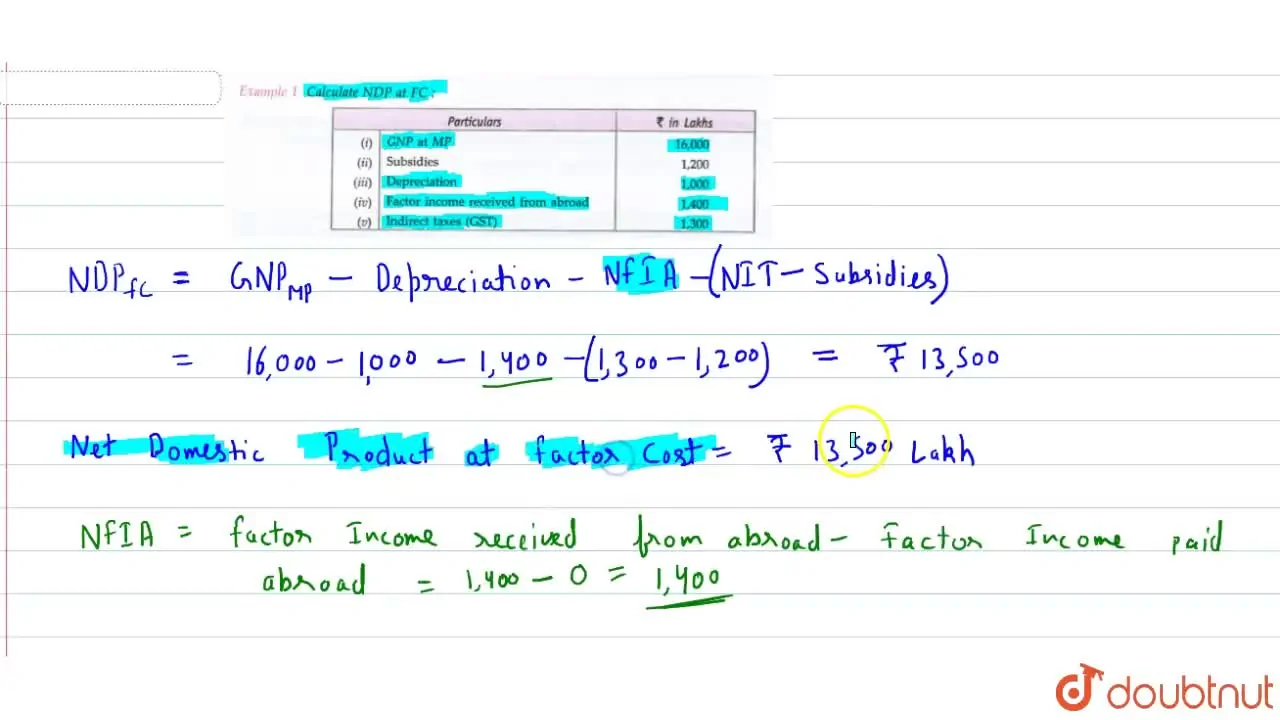 Example 1 Calculate NDP at FC :
Particulars ₹ in Lakhs
(i) GNP at MP 16,000
(ii) Subsidies 1,200
(iii) Depreciation 1,000
(iv) Factor income received from abroad 1,400
(v) Indirect taxes (GST) 1,300
NDPFC = GNPMP – Depreciation – NFIA – (NIT – Subsidies)
= 16,000 – 1,000 – 1,400 – (1,300 – 1,200) = ₹ 13,500
Net Domestic Product at factor Cost = ₹ 13,500 Lakh
NFIA = factor Income received from abroad – Factor Income paid
abroad = 1,400 – 0 = 1,400
doubtnut